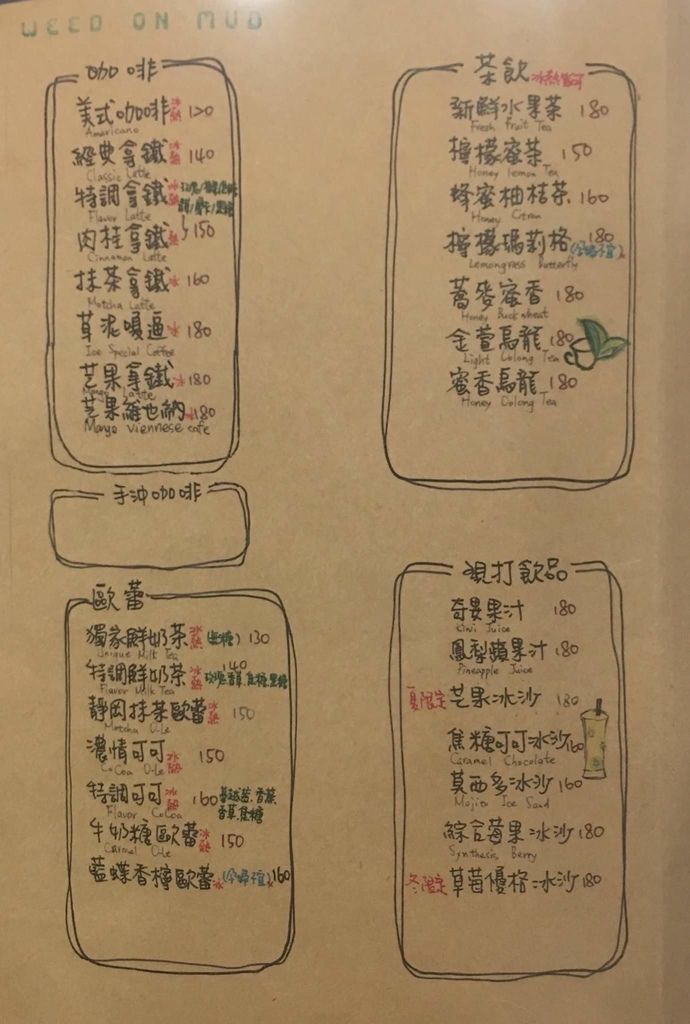 WEED ON MUD
咖啡
美式咖啡 冰熱 120
Americano
經典拿鐵 冰熱 140
Classic Latte
特調拿鐵 冰熱
Flavor Latte
肉桂拿鐵 熱 150
Cinnamon Latte
抹茶拿鐵 冰 160
Matcha Latte
草泥嗎逼 冰 180
Ice Special Coffee
芒果拿鐵 冰 180
Mango Latte
芒果維也納 冰 180
Mango viennese cafe
手沖咖啡
歐蕾
獨家鮮奶茶 冰熱 (無糖) 130
Unique Milk Tea
特調鮮奶茶 冰熱 140 玫瑰.香草.焦糖.黑糖
Flavor Milk Tea
靜岡抹茶歐蕾 冰熱 150
Matcha O-Le
濃情可可 冰熱 150
CoCoa O-Le
特調可可 冰熱 160 蔓越莓.香蕉.香草.焦糖
Flavor CoCoa
牛奶糖歐蕾 冰熱 150
Carmel O-Le
藍蝶香檸歐蕾 冰 (孕婦不宜) 160
茶飲 冰熱皆可
新鮮水果茶 180
Fresh Fruit Tea
檸檬蜜茶 150
Honey lemon Tea
蜂蜜柚桔茶 160
Honey Citron
檸檬瑪莉格 180 (孕婦不宜)
Lemongrass Butterfly
蕎麥蜜香 180
Honey Buckwheat
金萱烏龍 180
Light Oolong Tea
蜜香烏龍 180
Honey Oolong Tea
現打飲品
奇異果汁 180
Kiwi Juice
鳳梨蘋果汁 180
Pineapple Juice
夏限定 芒果冰沙 180
焦糖可可冰沙 160
Caramel Chocolate
莫西多冰沙 160
Mojito Ice Sand
綜合莓果冰沙 180
Synthesis Berry
冬限定 草莓優格冰沙 180